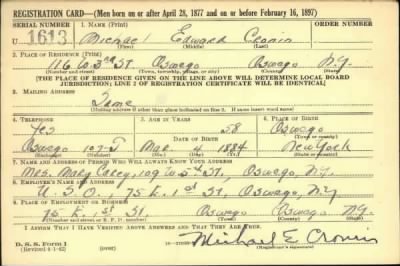 REGISTRATION CARD—(Men born on or after April 28, 1877 and on or before February 16, 1897)
SERIAL NUMBER
1. NAME (Print)
U 1613
Michael Edward Cronin
(First) (Middle) (Last)
2. PLACE OF RESIDENCE (Print)
116 W. 3rd St. Oswego Oswego N.Y.
(Number and street) (Town, township, village, or city) (County) (State)
[THE PLACE OF RESIDENCE GIVEN ON THE LINE ABOVE WILL DETERMINE LOCAL BOARD
JURISDICTION; LINE 2 OF REGISTRATION CERTIFICATE WILL BE IDENTICAL]
3. MAILING ADDRESS
Same
[Mailing address if other than place indicated on line 2. If same insert word same]
4. TELEPHONE
5. AGE IN YEARS
6. PLACE OF BIRTH
Yes
58
Oswego
DATE OF BIRTH
(Town or county)
Oswego
Mar. 4 1884
New York
(Exchange) (Number)
(Mo.) (Day) (Yr.)
(State or country)
7. NAME AND ADDRESS OF PERSON WHO WILL ALWAYS KNOW YOUR ADDRESS
Mrs. Mary St., Oswego, N.Y.
8. EMPLOYER'S NAME AND ADDRESS
U.S.O., 75 E. 1st St., Oswego, N.Y.
9. PLACE OF EMPLOYMENT OR BUSINESS
75 E. 1st St. Oswego Oswego N.Y.
(Number and street or R. F. D. number) (Town) (County) (State)
I AFFIRM THAT I HAVE VERIFIED ABOVE ANSWERS AND THAT THEY ARE TRUE.
D. S. S. Form 1
(Revised 4-1-42) (over)
Michael E. Cronin